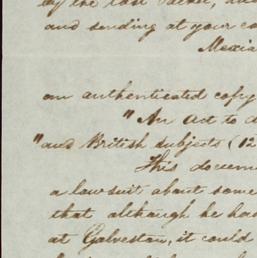 by the last Packet, and
and sending at your co
Mexia
an authenticated copy
"An Act to d
"and British subjects (12
This docume
a lawsuit about some
that although he had
at Galveston, it could